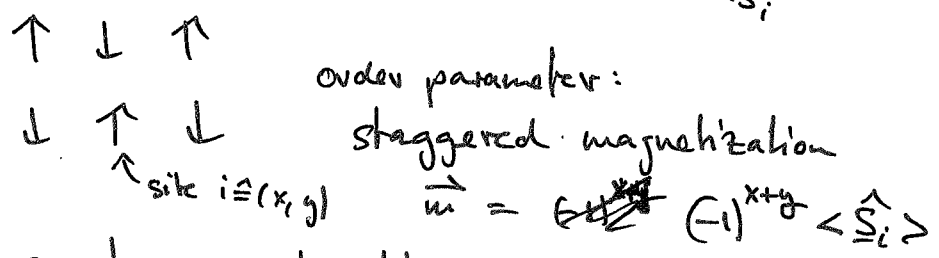 S_i
↑ ↓ ↑
order parameter:
↓ ↑ ↓ staggered magnetization
↑ site i ≙ (x, y) m⃗ = (-1)^{x+y} <Ŝ_i>